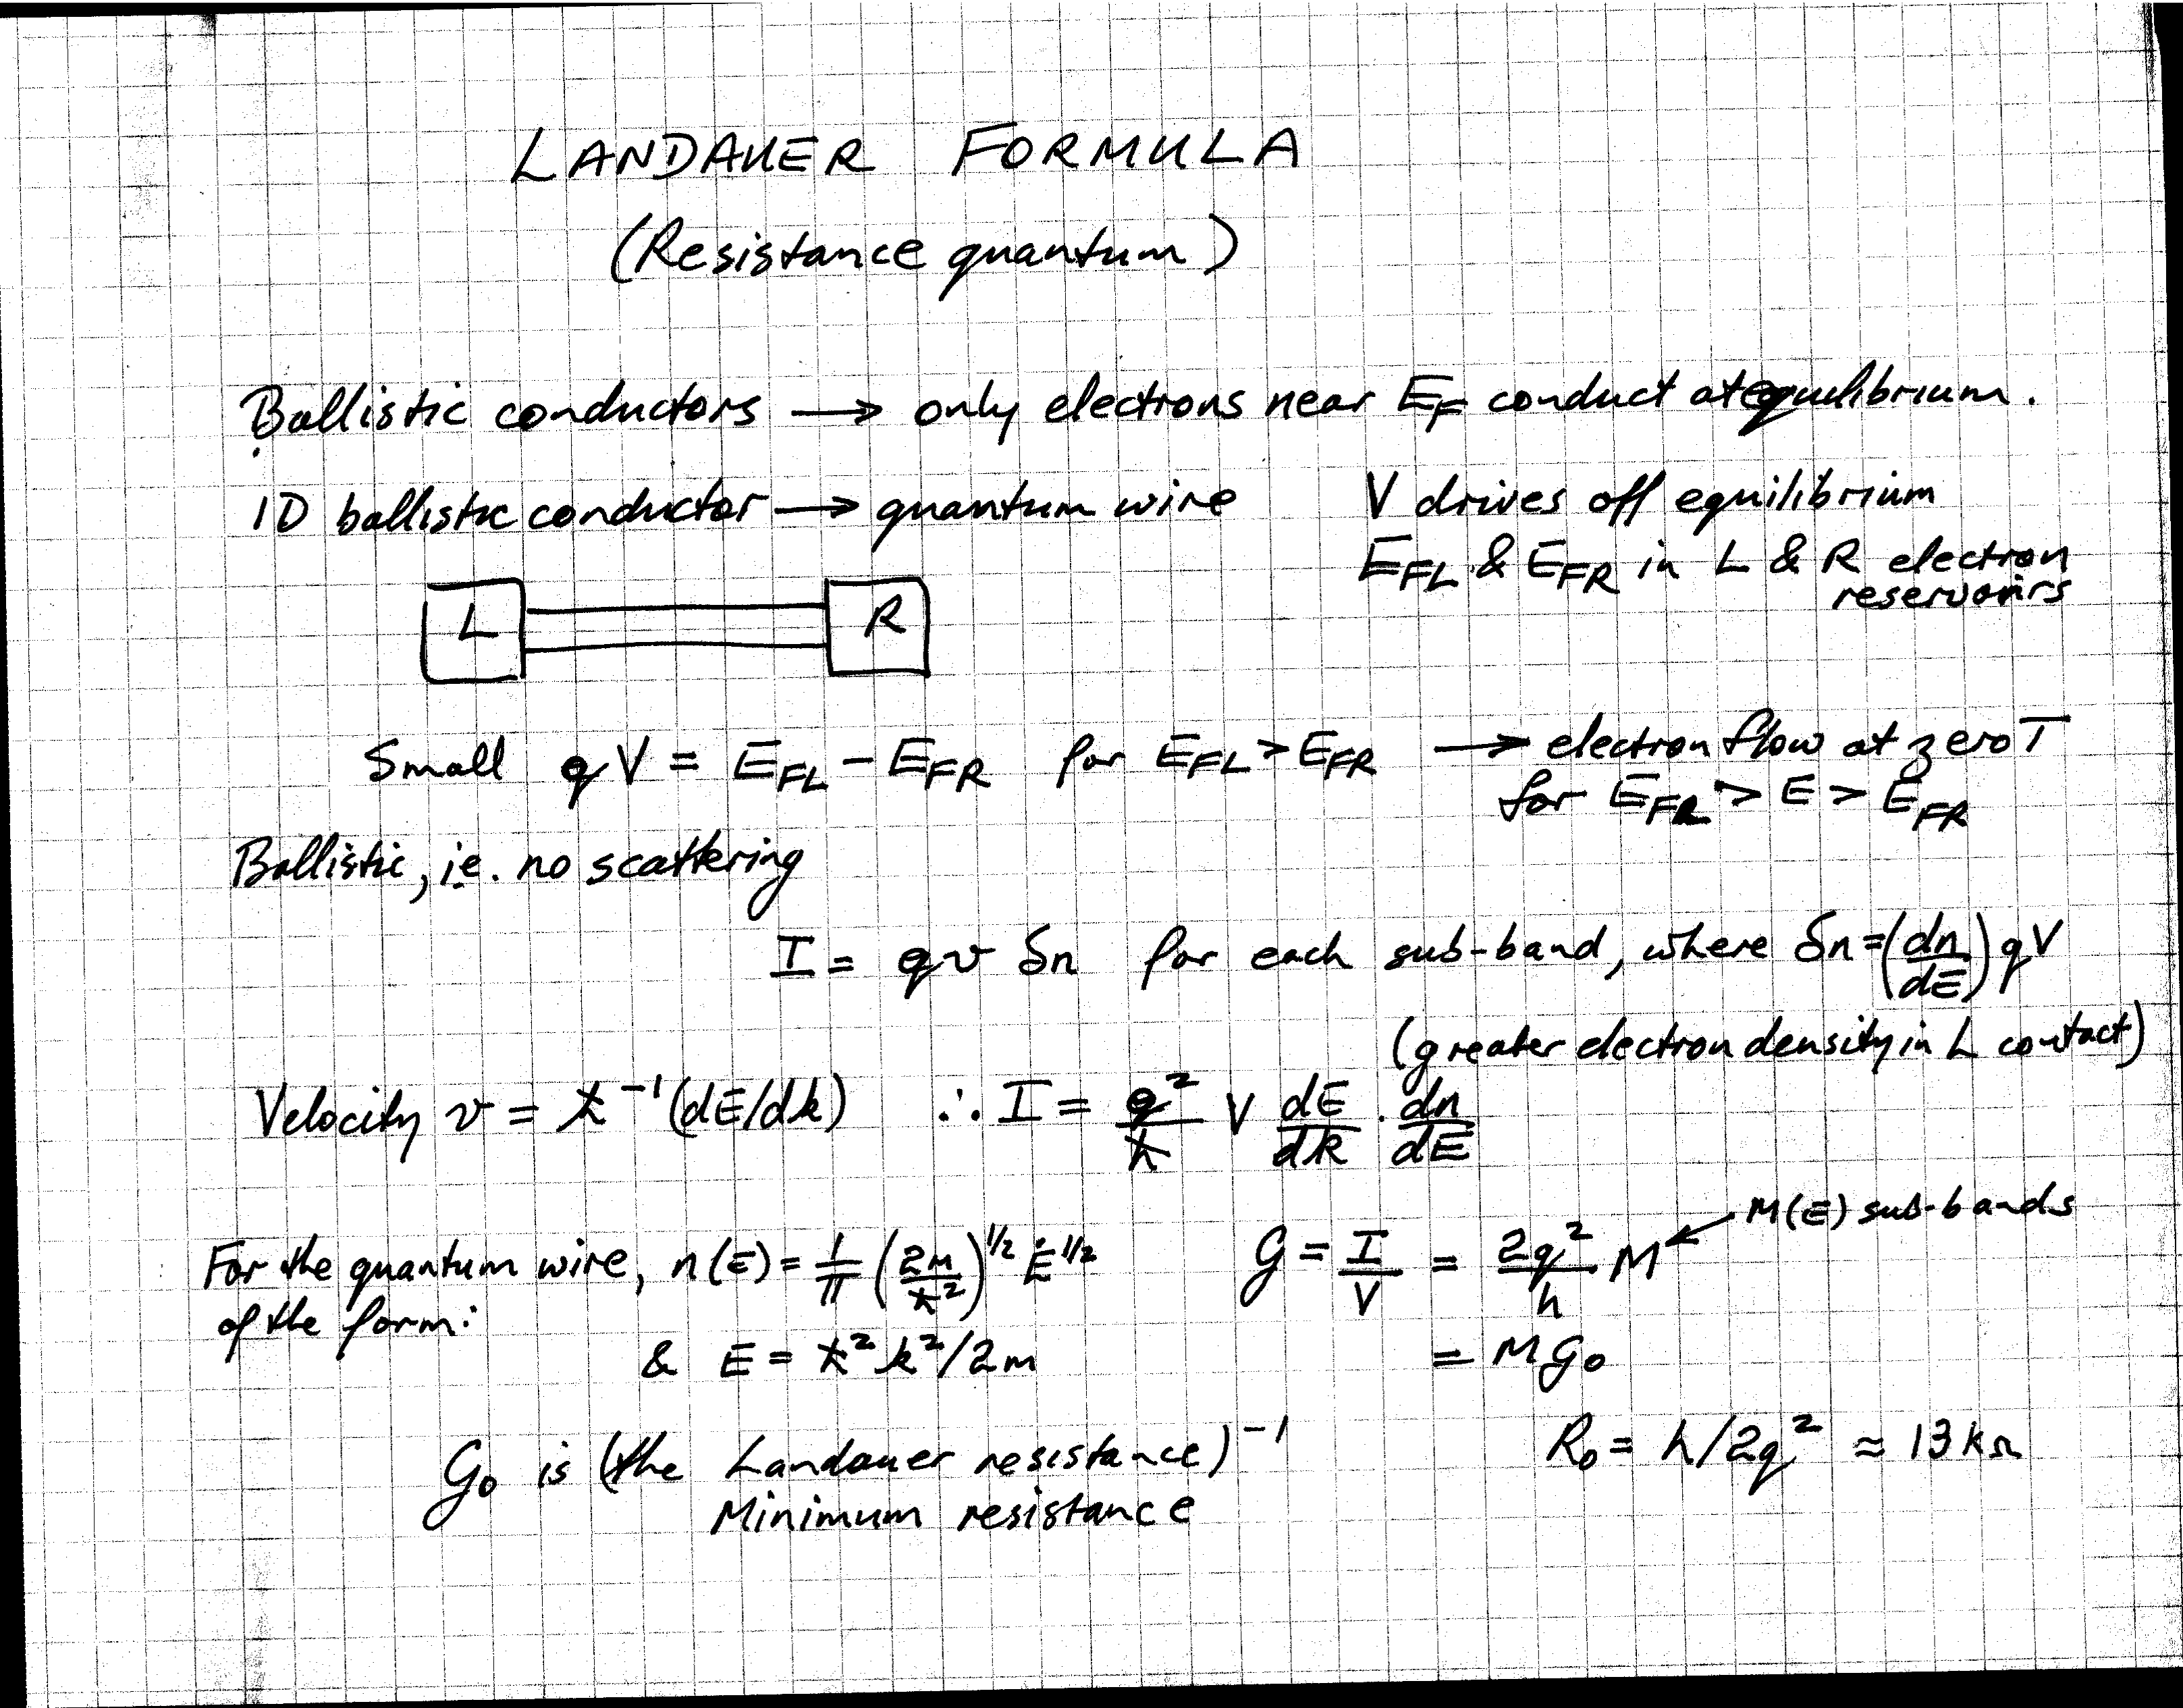 LANDAUER FORMULA
(Resistance quantum)
Ballistic conductors → only electrons near E_F conduct at equilibrium.
1D ballistic conductor → quantum wire V drives off equilibrium
E_FL & E_FR in L & R electron
reservoirs
L R
Small qV = E_FL - E_FR for E_FL > E_FR → electron flow at zero T
for E_FR > E > E_FR
Ballistic, i.e. no scattering
I = qv δn for each sub-band, where δn = (dn/dE) qV
(greater electron density in L contact)
Velocity v = ħ⁻¹(dE/dk) ∴ I = q²/ħ V dE/dk · dn/dE
M(E) sub-bands
For the quantum wire, n(E) = 1/π (2m/ħ²)^1/2 E^1/2 G = I/V = 2q²/h M
of the form:
& E = ħ²k²/2m = MG₀
G₀ is (the Landauer resistance)⁻¹ R₀ = h/2q² ≈ 13 kΩ
Minimum resistance